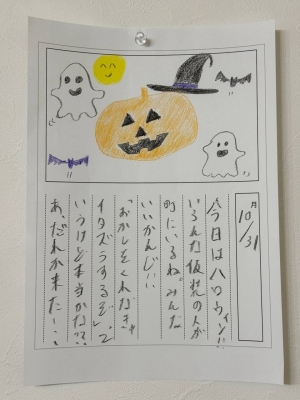 10月/31
今日はハロウィン!!
いろんな仮装の人が
町にいるね。みんな
いいかんじ!!!
「おかしをくれなきゃ
イタズラするぞ。」って
いうけど本当かな??
あ、だれか来た!…